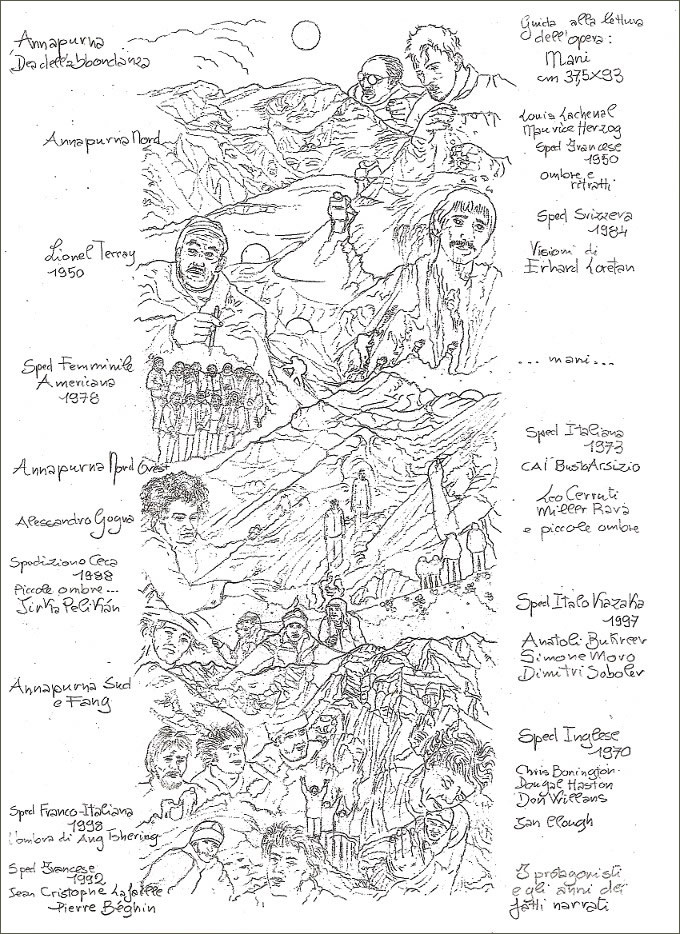 Annapurna
Dea dell'abbondanza
Annapurna Nord
Lionel Terray
1950
Sped Femminile
Americana
1978
Annapurna Nord Ovest
Alessandro Gogna
Spedizione Ceca
1988
Piccole ombre...
Jirka Pelikán
Annapurna Sud
e Fang
Sped Franco-Italiana
1998
l'ombra di Ang Tshering
Sped Francese
1992
Jean Cristophe Lafaille
Pierre Béghin
Guida alla lettura
dell'opera:
Mani
cm 37,5x93
Louis Lachenal
Maurice Herzog
Sped Francese
1950
ombre e
ritratti
Sped Svizzera
1984
Visioni di
Erhard Loretan
... mani...
Sped Italiana
1973
CAI Busto Arsizio
Leo Cerruti
Miller Ravà
e piccole ombre
Sped Italo Kazaka
1997
Anatoli Bukreev
Simone Moro
Dimitri Sobolev
Sped Inglese
1970
Chris Bonington
Dougal Haston
Don Willans
Ian Clough
I protagonisti
e gli anni dei
fatti narrati